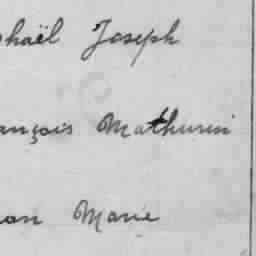 phaël Joseph
ançois Mathurin
on Marie